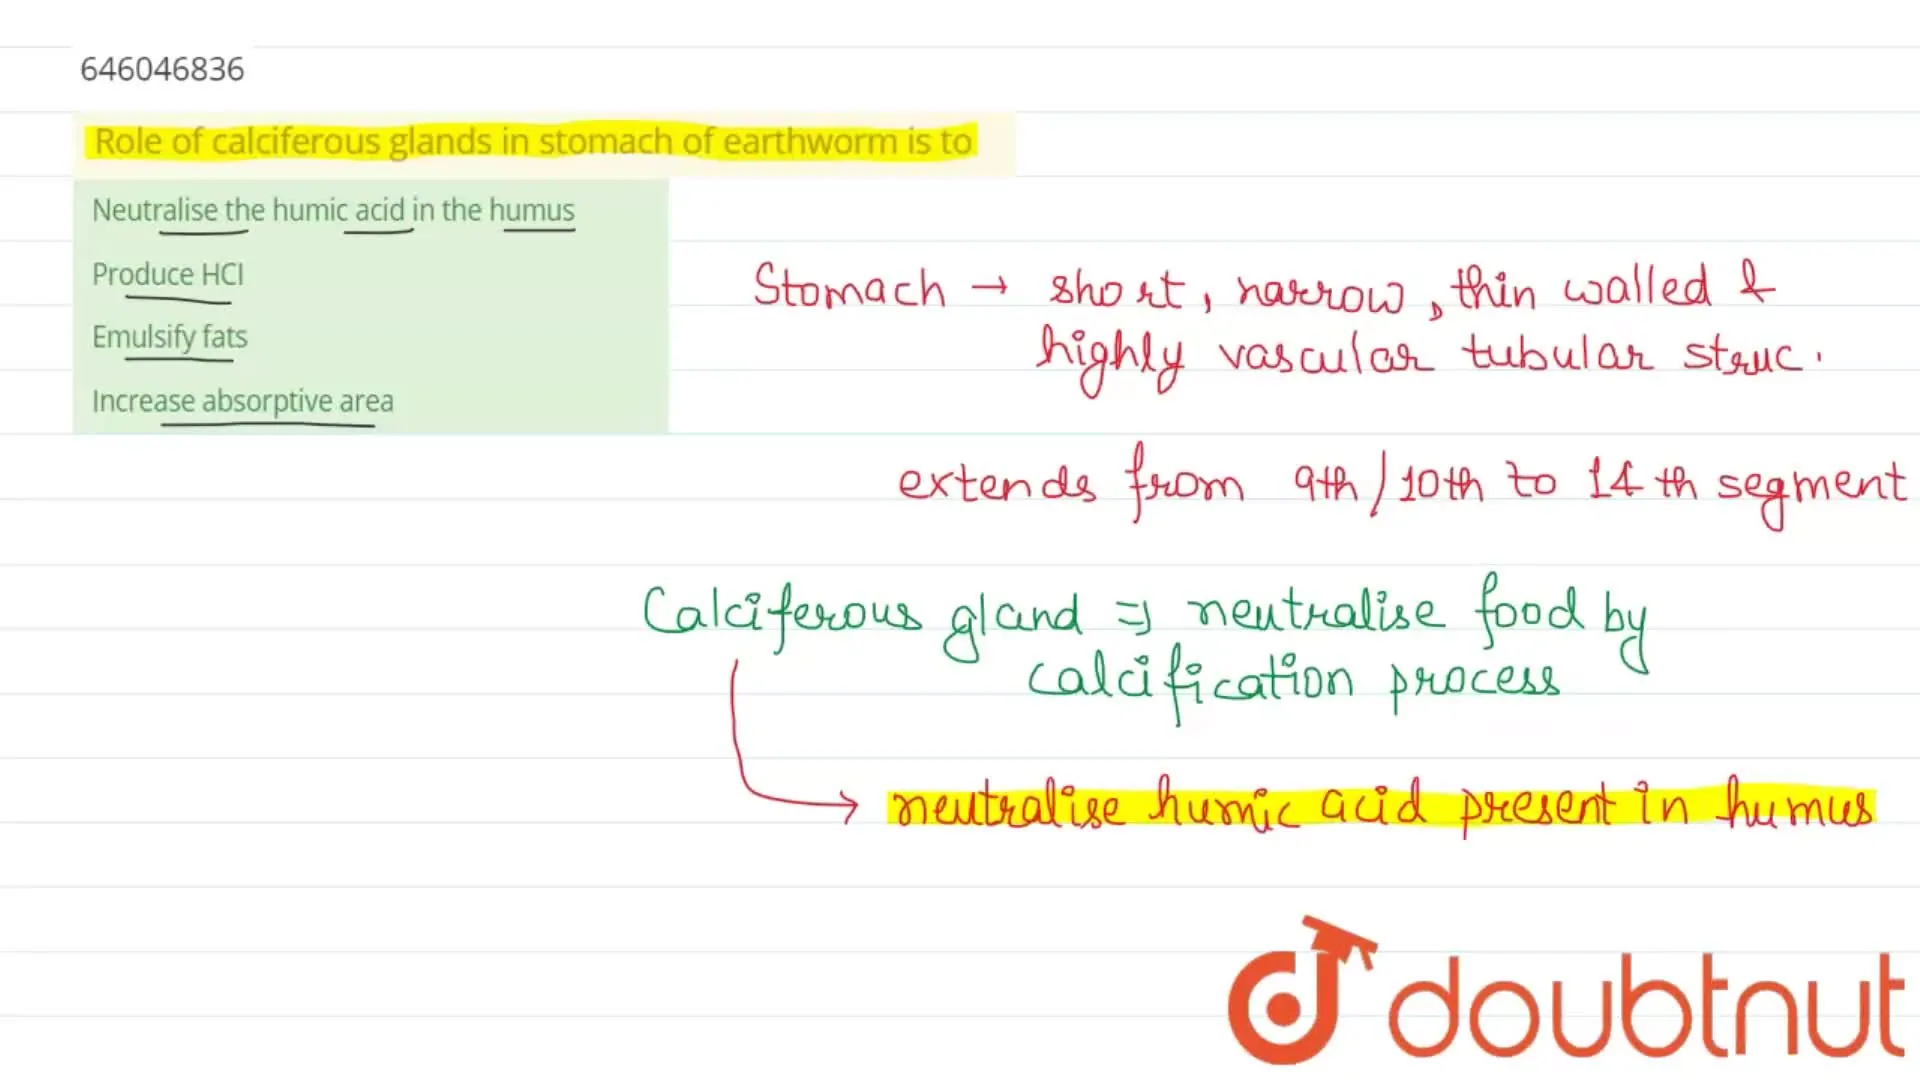 646046836
Role of calciferous glands in stomach of earthworm is to
Neutralise the humic acid in the humus
Produce HCl
Emulsify fats
Increase absorptive area
Stomach → short, narrow, thin walled &
highly vascular tubular struc.
extends from 9th/10th to 14th segment
Calciferous gland ⇒ neutralise food by
calcification process
→ neutralise humic acid present in humus
doubtnut